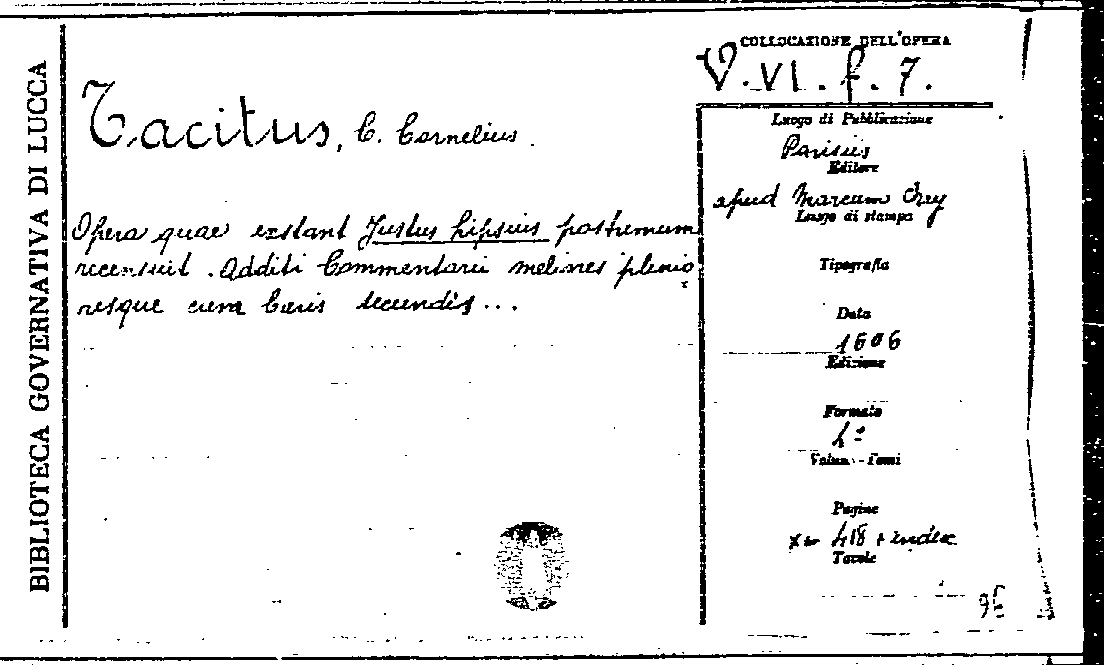 BIBLIOTECA GOVERNATIVA DI LUCCA
Tacitus, C. Cornelius.
Opera quae exstant Justus Lipsius postremum
recensuit. Additi Commentarii meliores plenio
resque cum Curis secundis...
COLLOCAZIONE DELL'OPERA
V. VI. f. 7.
Luogo di Pubblicazione
Parisiis
Editore
apud Marcum Orry
Luogo di stampa
Tipografia
Data
1606
Edizione
Formato
4°
Volumi - Tomi
Pagine
418 + index
Tavole